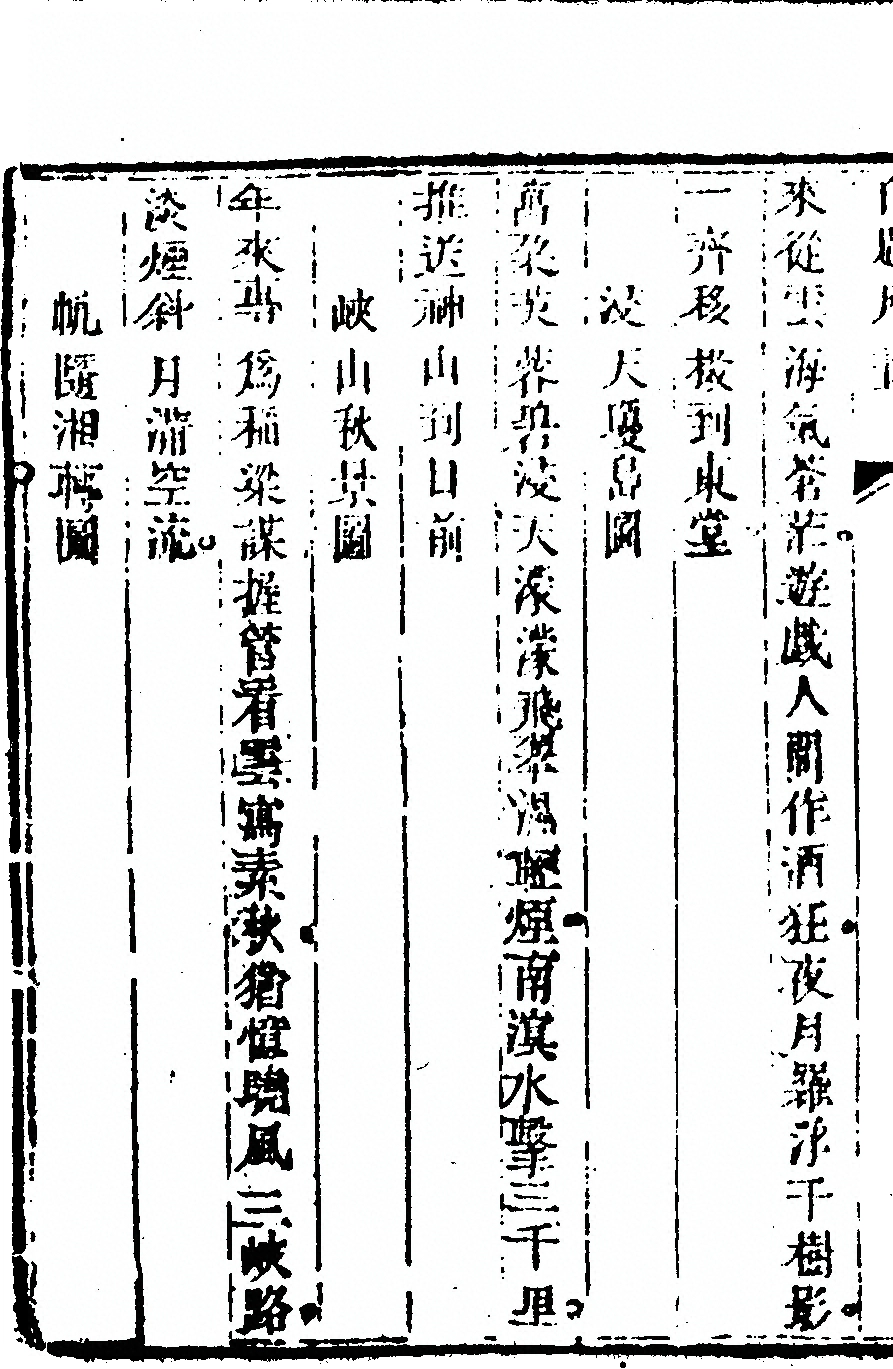 來從雲海氣蒼茫遊戲人間作酒狂夜月羅浮千樹影
一齊移椄到東堂
浸天疊島圖
萬朶芙蓉碧浸天濛濛飛翠濕虛煙南溟水擊三千里
推送神山到目前
峽山秋景圖
年來專爲稲梁謀握管看雲寫素秋猶憶曉風三峽路
淡煙斜月滿空流
帆隨湘轉圖